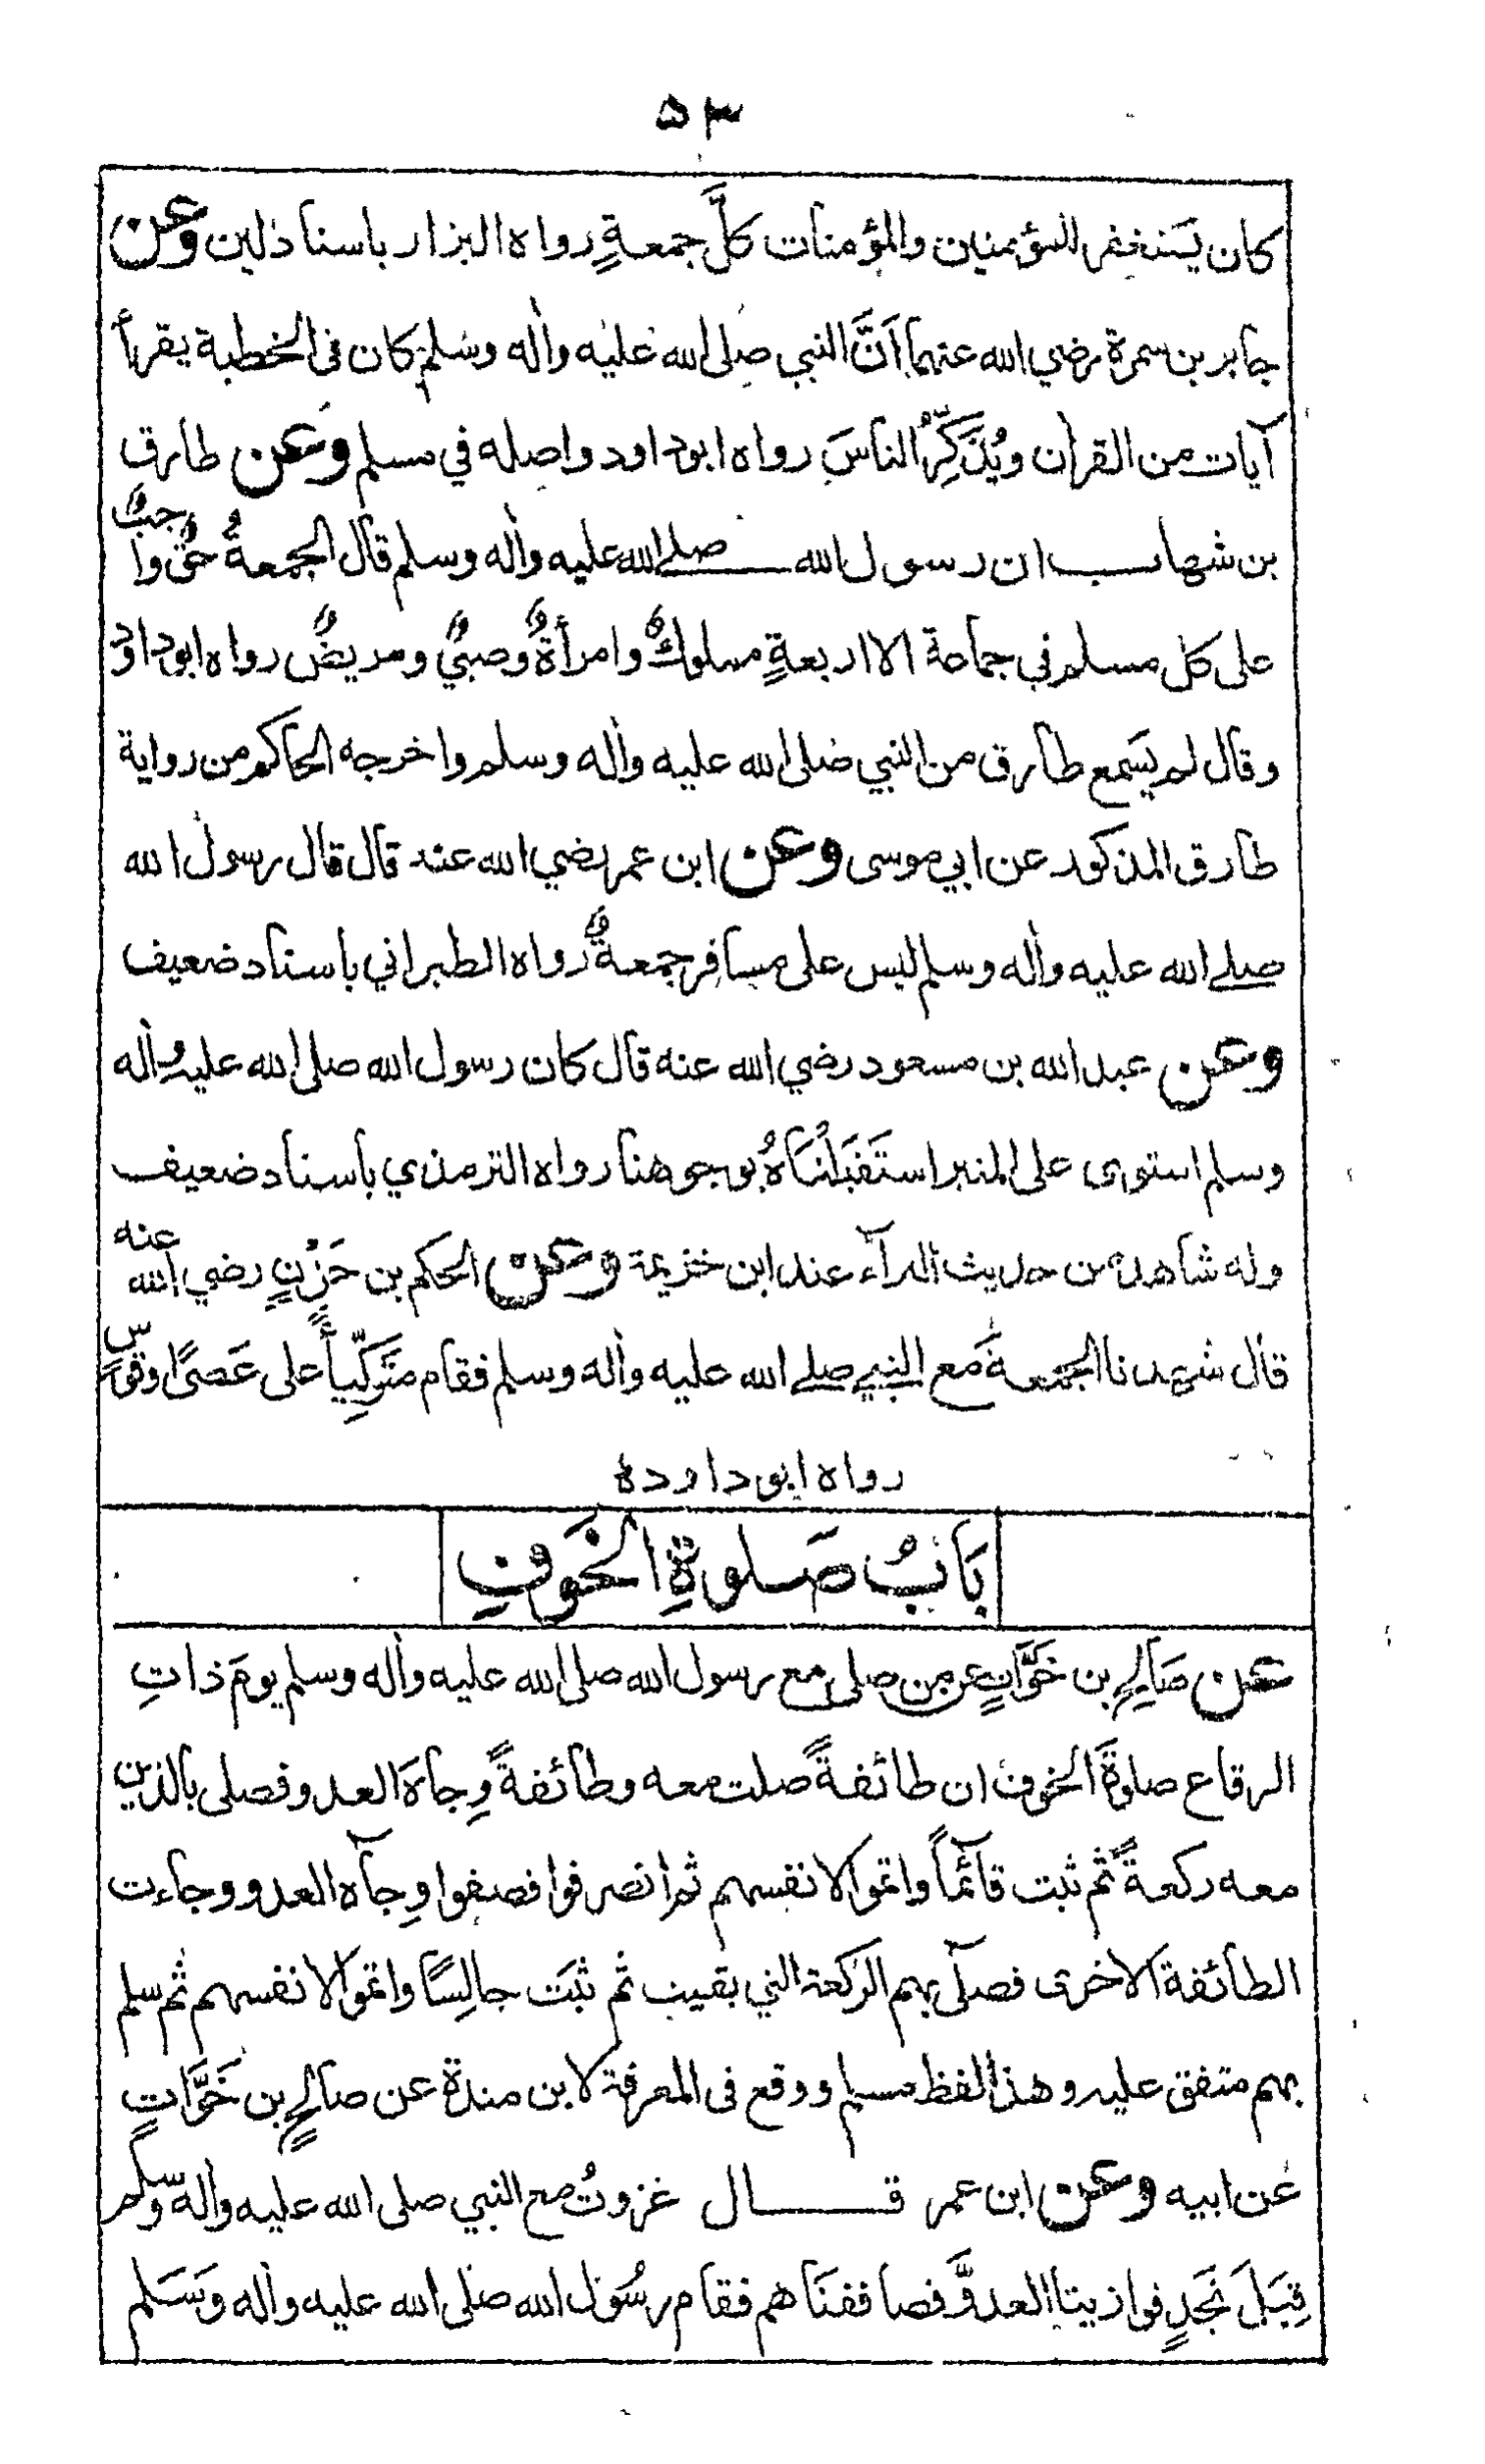 ۵۳
كان يَستغفر للمؤمنين والمؤمنات كلَّ جمعةٍ رواه البزار باسناد لين وعن
جابر بن سمرة رضي الله عنهما اَنَّ النبي صلى الله عليه واٰله وسلم كان فى الخطبة يقرأ
آيات من القراٰن ويُذَكِّرُ الناسَ رواه ابوداود واصله في مسلم وعن طارق
بن شهاب ان رسول الله صلے الله عليه واٰله وسلم قال الجمعةُ حقٌ واجبٌ
على كل مسلم في جماعة الا اربعةٍ مملوكٌ وامرأةٌ وصبيٌّ ومريضٌ رواه ابوداود
وقال لم يَسمع طارق من النبي صلى الله عليه واٰله وسلم واخرجه الحاكم من رواية
طارق المذكور عن ابي موسى وعن ابن عمر رضي الله عنه قال قال رسول الله
صلے الله عليه واٰله وسلم ليس على مسافر جمعةٌ رواه الطبراني باسناد ضعيف
وعن عبد الله بن مسعود رضي الله عنه قال كان رسول الله صلى الله عليه واٰله
وسلم استوى على المنبر استَقبَلْنَاهُ بوجوهنا رواه الترمذي باسناد ضعيف
وله شاهد من حديث البرآء عند ابن خزيمة وعن الحكم بن حَزْنٍ رضي الله عنه
قال شهدنا الجمعةَ مَع النبي صلے الله عليه واٰله وسلم فقام متَوَكِّياً على عَصىً اوقوسٍ
رواه ابوداودہ
بَابُ صَلوةِ الخَوفِ
عن صَالحِ بن خَوَّاتٍ عن من صلى مع رسول الله صلى الله عليه واٰله وسلم يومَ ذاتِ
الرقاع صلوةَ الخوف ان طائفةً صلت معه وطائفةً وِجاهَ العدو فصلى بالذين
معه ركعةً ثم ثبت قآئماً واتموا لانفسهم ثم انصرفوا فصفوا وِجآه العدو وجاءت
الطائفة الاخرى فصلى بهم الركعة التي بقيت ثم ثبَت جالِسًا واتموا لانفسهم ثم سلم
بهم متفق عليه وهذا لفظ مسلم ووقع فى المعرفة لابن مندة عن صالحِ بن خَوَّاتٍ
عن ابيه وعن ابن عمر قال غزوتُ مع النبي صلى الله عليه واٰله وسلم
قِبَلَ نَجدٍ فوازينا العدوَّ فصاففنَاهم فقام رسُول الله صلى الله عليه واٰله وَسَلم